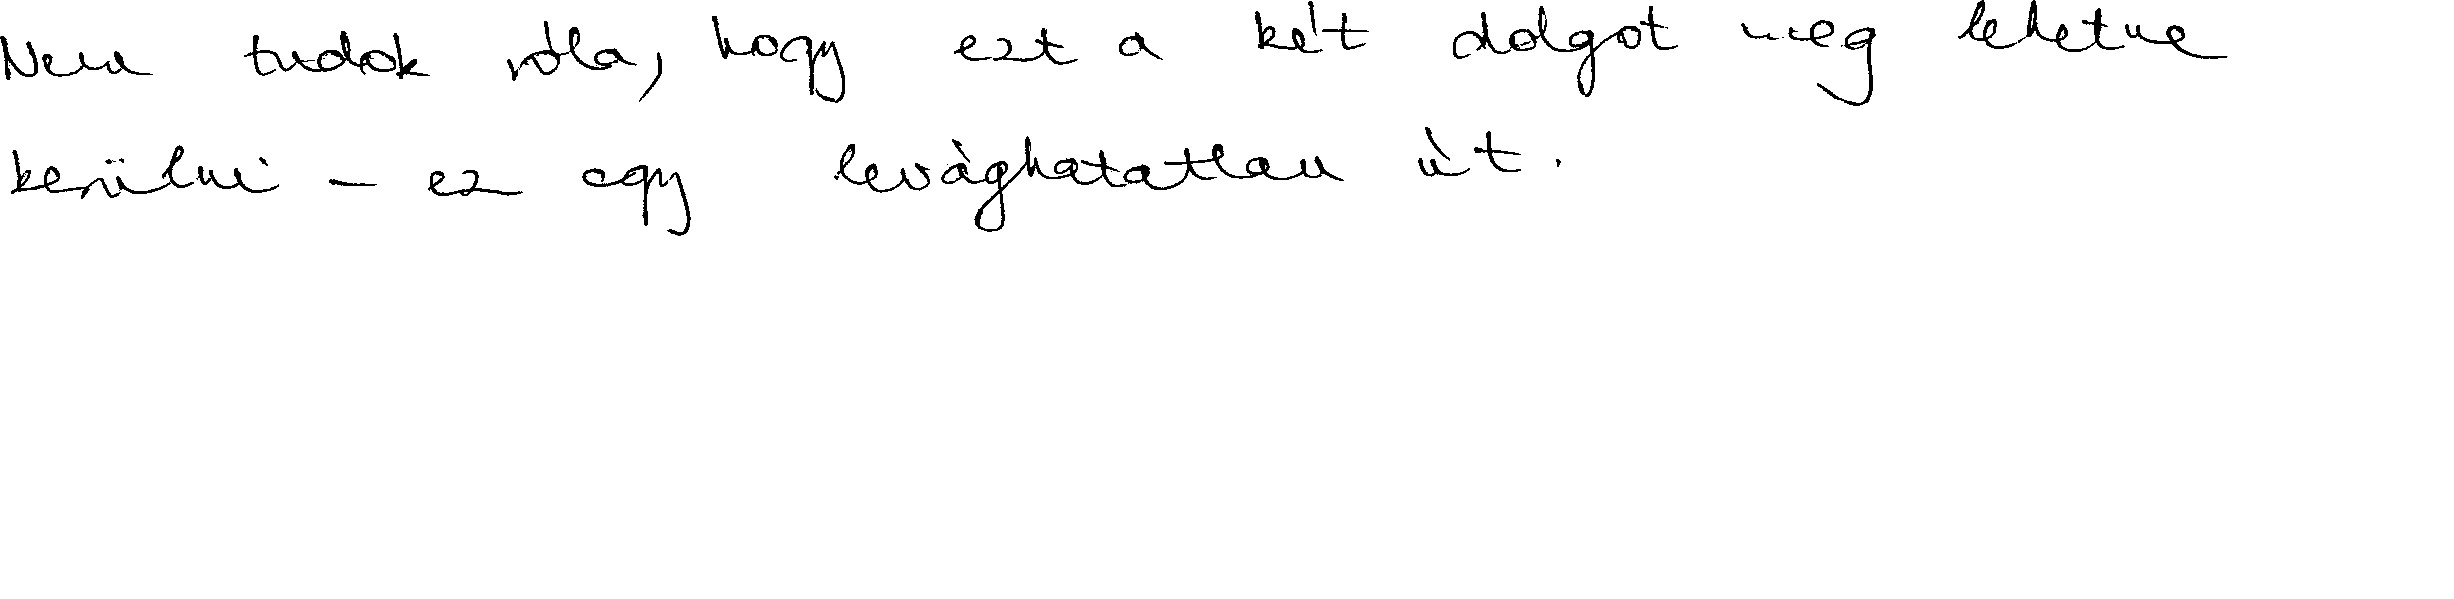 Nem tudok róla, hogy ezt a két dolgot meg lehetne
kerülni - ez egy levághatatlan út.